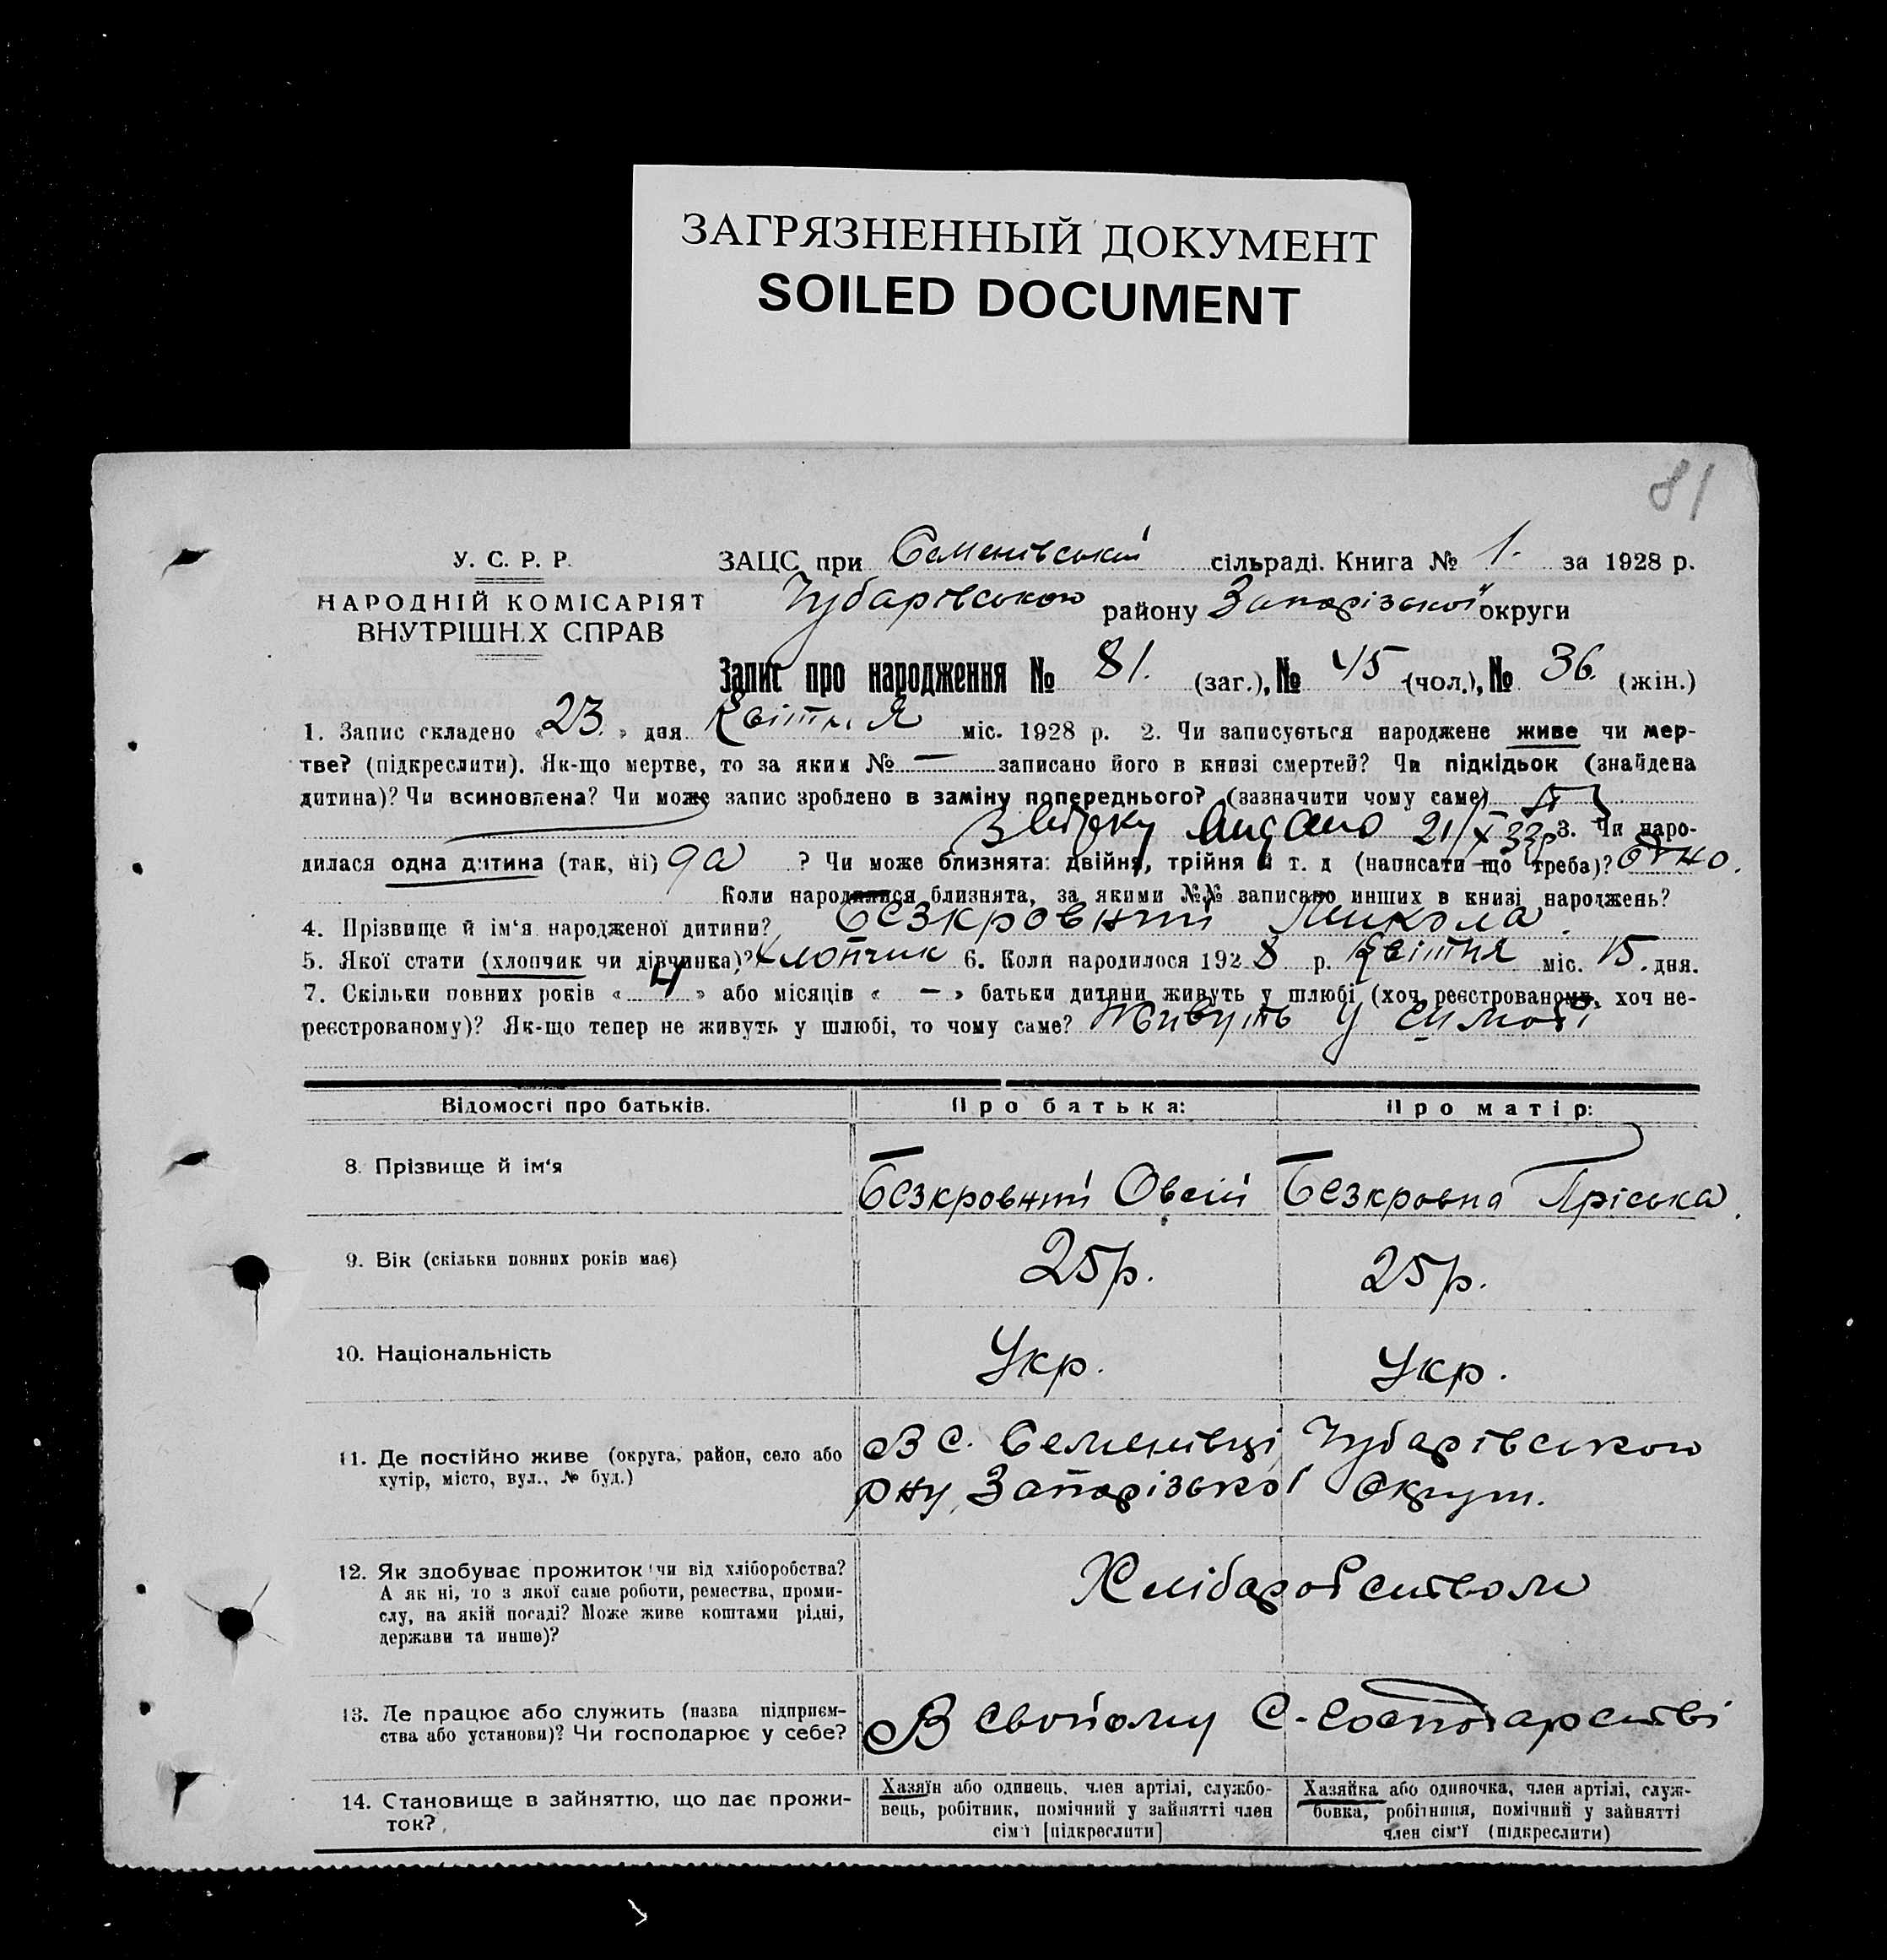 ЗАГРЯЗНЕННЫЙ ДОКУМЕНТ
SOILED DOCUMENT
81
У. С. Р. Р.
НАРОДНІЙ КОМІСАРІЯТ
ВНУТРІШНІХ СПРАВ
ЗАЦС при Семенівській сільраді. Книга № 1. за 1928 р.
Чубарівського району Запорізької округи
Запис про народження № 81. (заг.), № 45 (чол.), № 36. (жін.)
1. Запис складено «23.» дня Квітня міс. 1928 р. 2. Чи записується народжене живе чи мер-
тве? (підкреслити). Як-що мертве, то за яким № — записано його в книзі смертей? Чи підкідьок (знайдена
дитина)? Чи всиновлена? Чи може запис зроблено в заміну попереднього? (зазначити чому саме)
Видано 21/X 33р 3. Чи наро-
дилася одна дитина (так, ні) ? Чи може близнята: двійня, трійня й т. д (написати що треба)? одно.
Коли народилися близнята, за якими №№ записано инших в книзі народжень?
4. Прізвище й ім‘я народженої дитини? Безкровний Микола.
5. Якої стати (хлопчик чи дівчинка)? Хлопчик 6. Коли народилося 1928 р. Квітня міс. 15. дня.
7. Скільки повних років «4» або місяців « — » батьки дитини живуть у шлюбі (хоч реєстрованому, хоч не-
реєстрованому)? Як-що тепер не живуть у шлюбі, то чому саме? Живуть у
Відомості про батьків. Про батька: Про матір:
8. Прізвище й ім‘я Безкровний Овсій Безкровна Пріська
9. Вік (скільки повних років має) 25р. 25р.
10. Національність Укр. Укр.
11. Де постійно живе (округа, район, село або В с. Семенівці Чубарівського
хутір, місто, вул., № буд.) рну, Запорізької Округи.
12. Як здобуває прожиток чи від хліборобства? Хліборобством
А як ні, то з якої саме роботи, ремества, проми-
слу, на якій посаді? Може живе коштами рідні,
держави та инше)?
13. Де працює або служить (назва підприєм- В свойому С-господарстві
ства або установи)? Чи господарює у себе?
14. Становище в зайняттю, що дає прожи-
ток?
Хазяїн або одинець, член артілі, службо-
вець, робітник, помічний у зайнятті член
сім‘ї [підкреслити]
Хазяйка або одиночка, член артілі, служ-
бовка, робітниця, помічний у зайнятті
член сім‘ї (підкреслити)